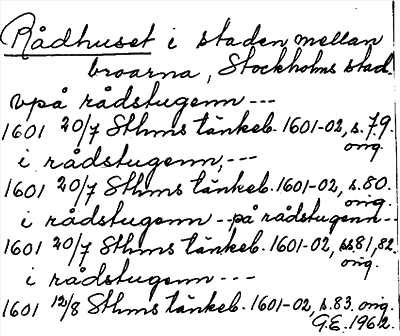 Rådhuset i staden mellan
broarna, Stockholms stad.
vpå rådstugenn ---
1601 20/7 Sthms tänkeb. 1601-02, s.79.
orig.
i rådstugenn, ---
1601 20/7 Sthms tänkeb. 1601-02, s.80.
orig.
i rådstugenn -- på rådstugenn --
1601 20/7 Sthms tänkeb. 1601-02, ss.81,82.
orig.
i rådstugenn ---
1601 12/8 Sthms tänkeb. 1601-02, s.83. orig.
G.E. 1962.